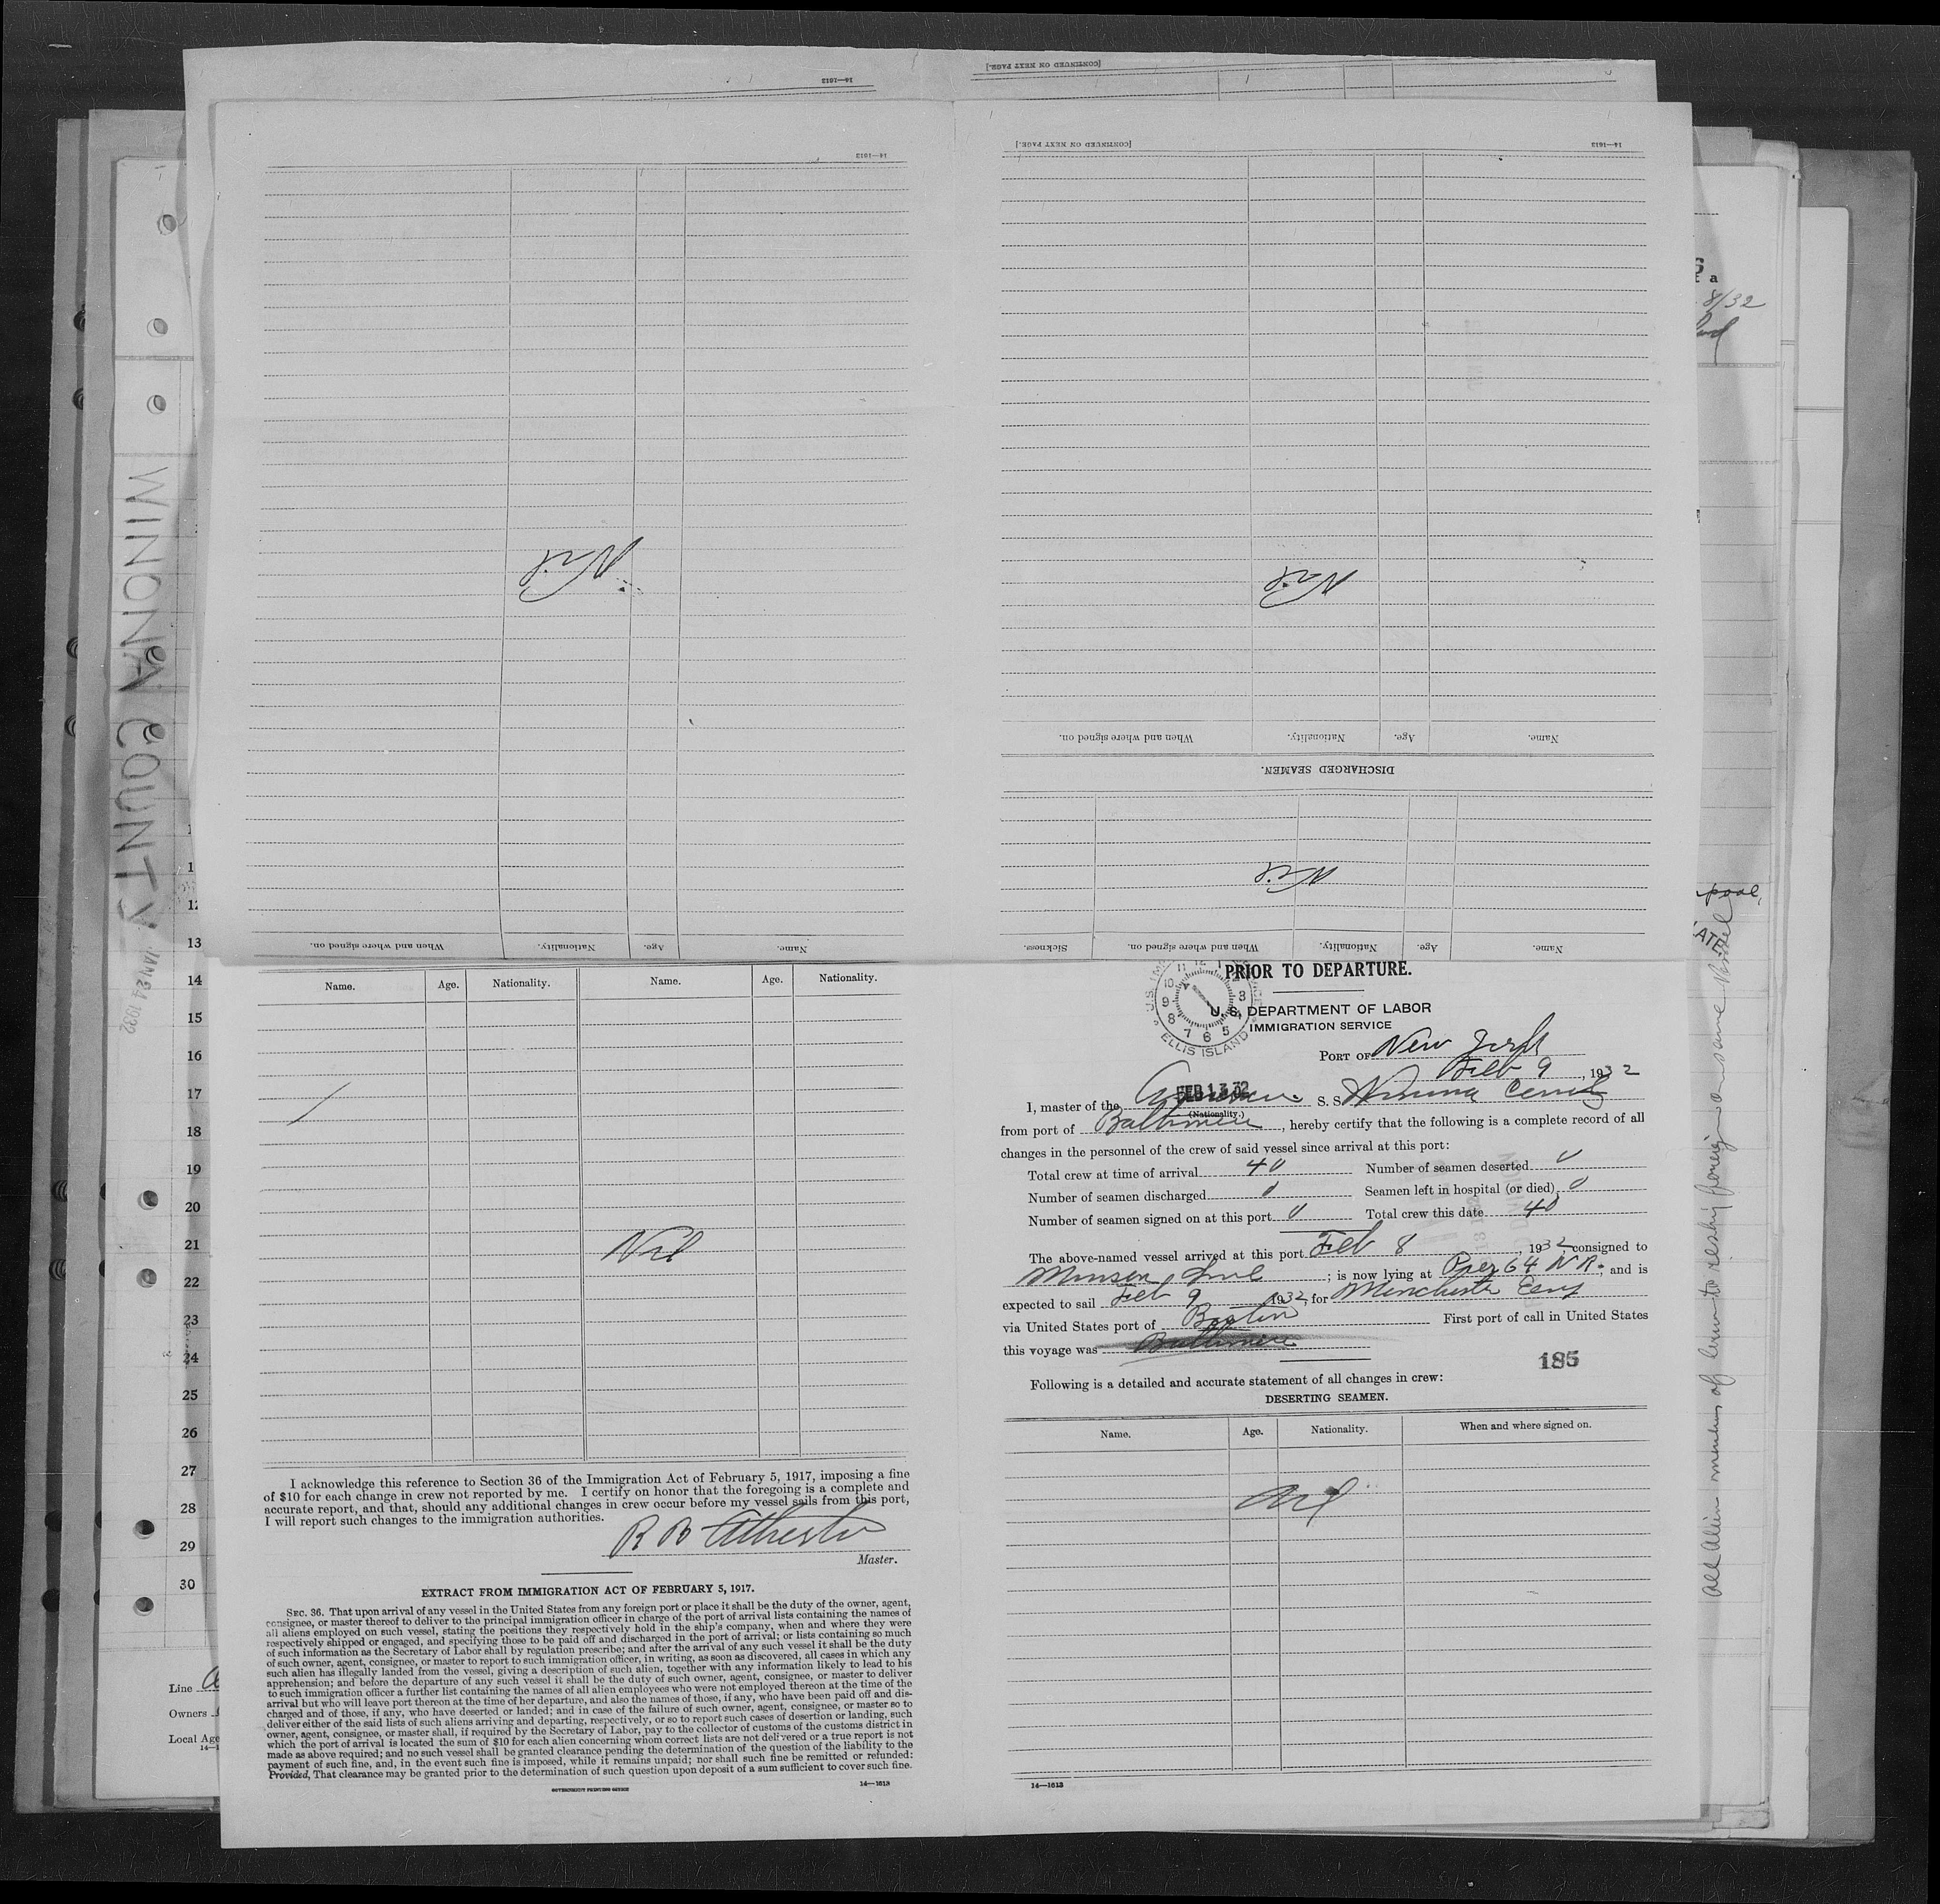 [CONTINUED ON NEXT PAGE.]
14—1613
14—1613
[CONTINUED ON NEXT PAGE.]
14—1613
Nil
Nil
When and where signed on.
Nationality.
Age.
Name.
DISCHARGED SEAMEN.
Nil
When and where signed on.
Nationality.
Age.
Name.
Sickness.
When and where signed on.
Nationality.
Age.
Name.
WINONA COUNTY
JAN 24 1932
8/32
a
12
13
14
15
16
17
18
19
20
21
22
23
24
25
26
27
28
29
30
Line
Owners
Local Age
pool,
ATE
All Alien members of crew to reship foreign on same vessel
Name. Age. Nationality. Name. Age. Nationality.
Nil
I acknowledge this reference to Section 36 of the Immigration Act of February 5, 1917, imposing a fine
of $10 for each change in crew not reported by me. I certify on honor that the foregoing is a complete and
accurate report, and that, should any additional changes in crew occur before my vessel sails from this port,
I will report such changes to the immigration authorities.
R B
Master.
EXTRACT FROM IMMIGRATION ACT OF FEBRUARY 5, 1917.
SEC. 36. That upon arrival of any vessel in the United States from any foreign port or place it shall be the duty of the owner, agent,
consignee, or master thereof to deliver to the principal immigration officer in charge of the port of arrival lists containing the names of
all aliens employed on such vessel, stating the positions they respectively hold in the ship's company, when and where they were
respectively shipped or engaged, and specifying those to be paid off and discharged in the port of arrival; or lists containing so much
of such information as the Secretary of Labor shall by regulation prescribe; and after the arrival of any such vessel it shall be the duty
of such owner, agent, consignee, or master to report to such immigration officer, in writing, as soon as discovered, all cases in which any
such alien has illegally landed from the vessel, giving a description of such alien, together with any information likely to lead to his
apprehension; and before the departure of any such vessel it shall be the duty of such owner, agent, consignee, or master to deliver
to such immigration officer a further list containing the names of all alien employees who were not employed thereon at the time of the
arrival but who will leave port thereon at the time of her departure, and also the names of those, if any, who have been paid off and dis-
charged and of those, if any, who have deserted or landed; and in case of the failure of such owner, agent, consignee, or master so to
deliver either of the said lists of such aliens arriving and departing, respectively, or so to report such cases of desertion or landing, such
owner, agent, consignee, or master shall, if required by the Secretary of Labor, pay to the collector of customs of the customs district in
which the port of arrival is located the sum of $10 for each alien concerning whom correct lists are not delivered or a true report is not
made as above required; and no such vessel shall be granted clearance pending the determination of the question of the liability to the
payment of such fine, and, in the event such fine is imposed, while it remains unpaid; nor shall such fine be remitted or refunded:
Provided, That clearance may be granted prior to the determination of such question upon deposit of a sum sufficient to cover such fine.
GOVERNMENT PRINTING OFFICE
14—1613
PRIOR TO DEPARTURE.
U. S. DEPARTMENT OF LABOR
IMMIGRATION SERVICE
ELLIS ISLAND
PORT OF New York
Feb 9, 1932
FEB 13 32
I, master of the American S. S. Winona County
(Nationality.)
from port of Baltimore, hereby certify that the following is a complete record of all
changes in the personnel of the crew of said vessel since arrival at this port:
Total crew at time of arrival 40 Number of seamen deserted 0
Number of seamen discharged 0 Seamen left in hospital (or died) 0
Number of seamen signed on at this port 0 Total crew this date 40
The above-named vessel arrived at this port Feb 8, 1932, consigned to
Munson Line; is now lying at Pier 64 N R; and is
expected to sail Feb 9 1932, for Manchester Eng
via United States port of Boston First port of call in United States
this voyage was Baltimore
185
Following is a detailed and accurate statement of all changes in crew:
DESERTING SEAMEN.
Name. Age. Nationality. When and where signed on.
Nil
14—1613